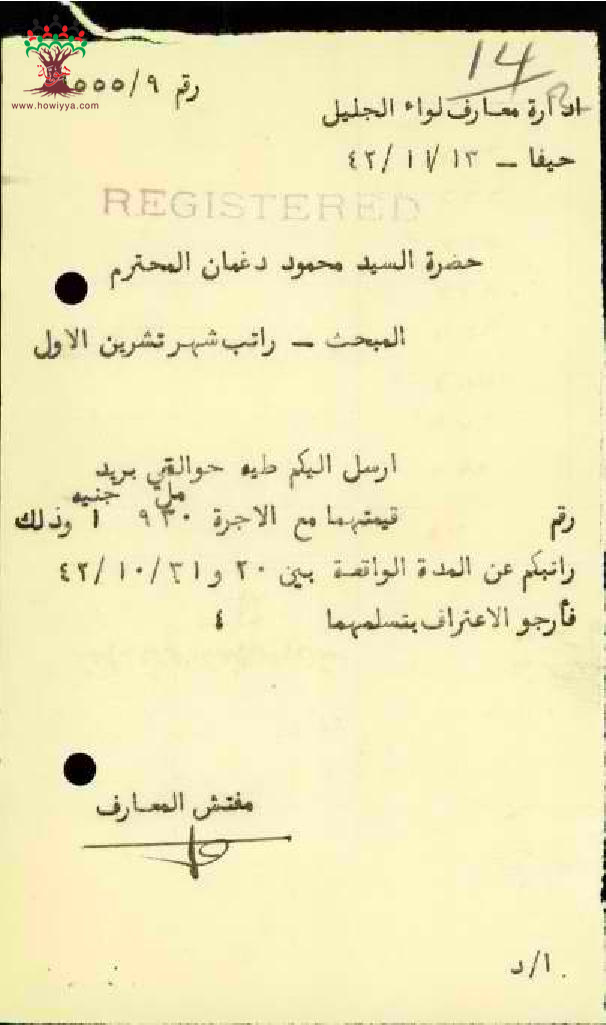 14
www.howiyya.com
رقم ٥٥٥/٩
ادارة معارف لواء الجليل
حيفا – ٤٢/١١/١٣
REGISTERED
حضرة السيد محمود دغمان المحترم
المبحث – راتب شهر تشرين الاول
ارسل اليكم طيه حوالتي بريد
مل جنيه
رقم قيمتهما مع الاجرة ٩٣٠ ١ وذلك
راتبكم عن المدة الواقعة بين ٢٠ و ٤٢/١٠/٣١
فأرجو الاعتراف بتسلمهما ٤
مفتش المعارف
ا/د